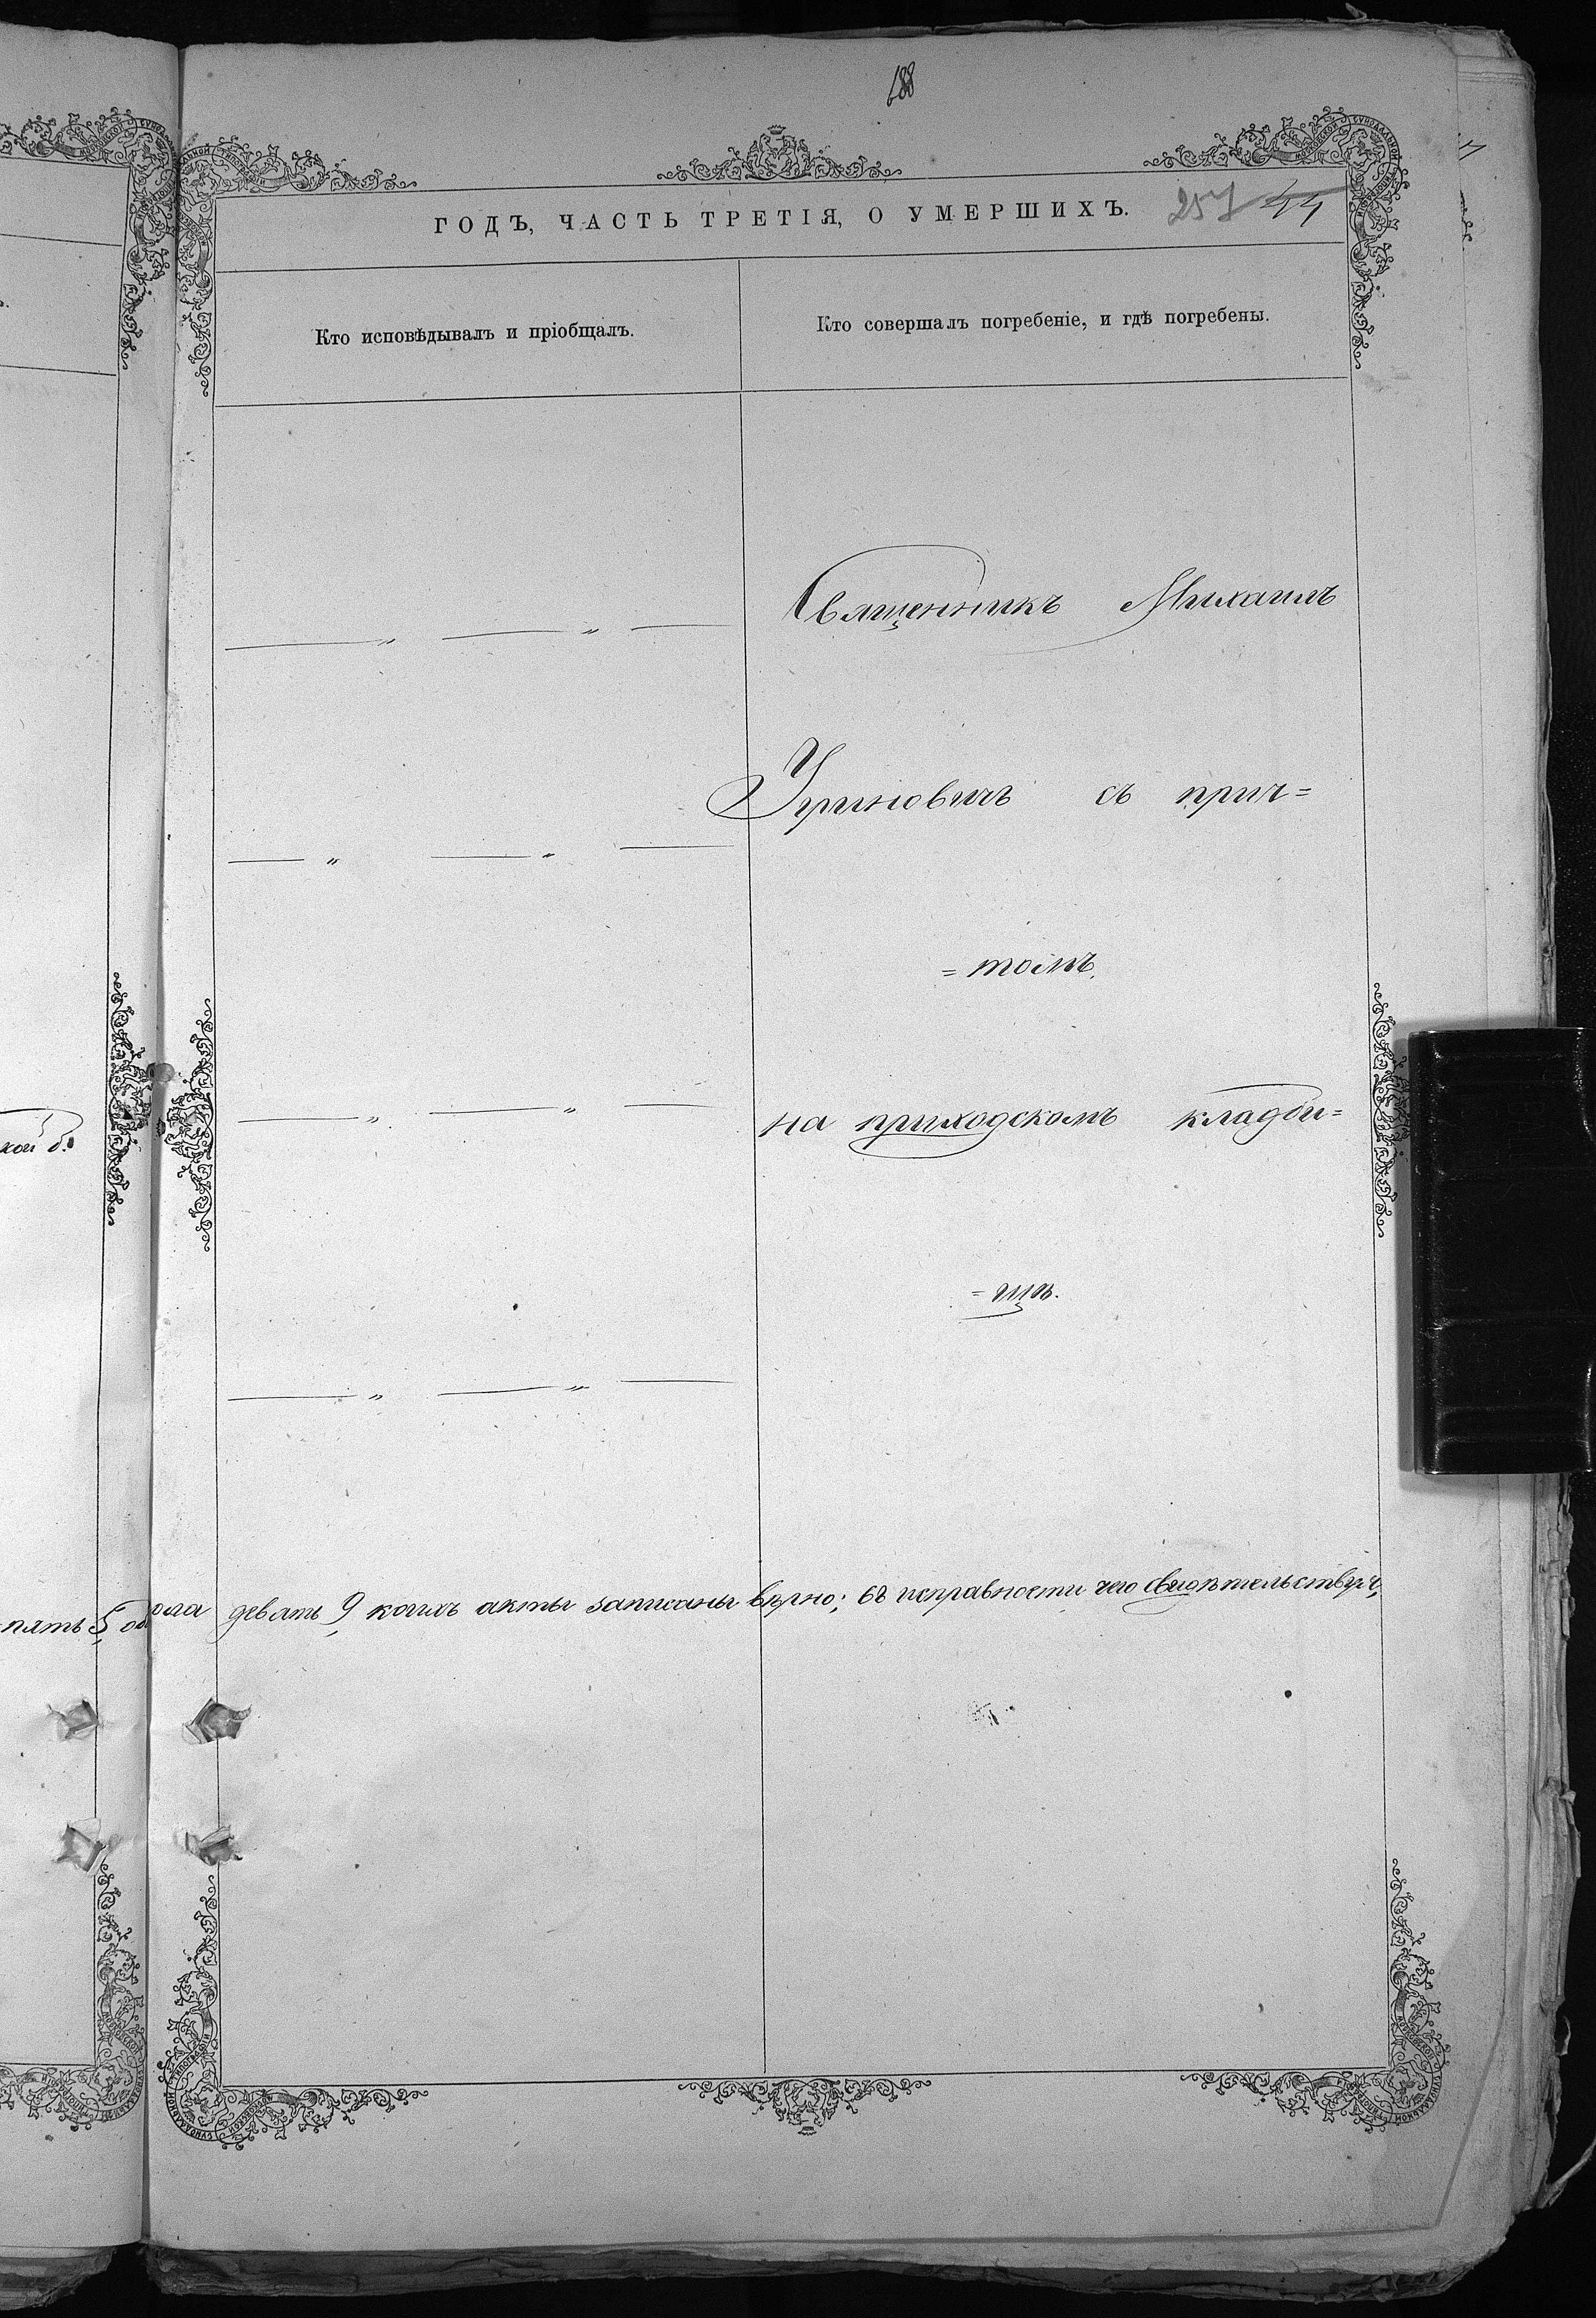 188
ГОДЪ, ЧАСТЬ ТРЕТІЯ, О УМЕРШИХЪ. 257 44
Кто исповѣдывалъ и пріобщалъ.
Кто совершалъ погребеніе, и гдѣ погребены.
Священникъ Михаилъ
Угриновичъ съ прич=
=томъ.
на приходскомъ кладби=
=щѣ.
кой б.
пять 5 обоего пола девять 9, коихъ акты записаны вѣрно; въ исправности чего свидѣтельствуютъ,